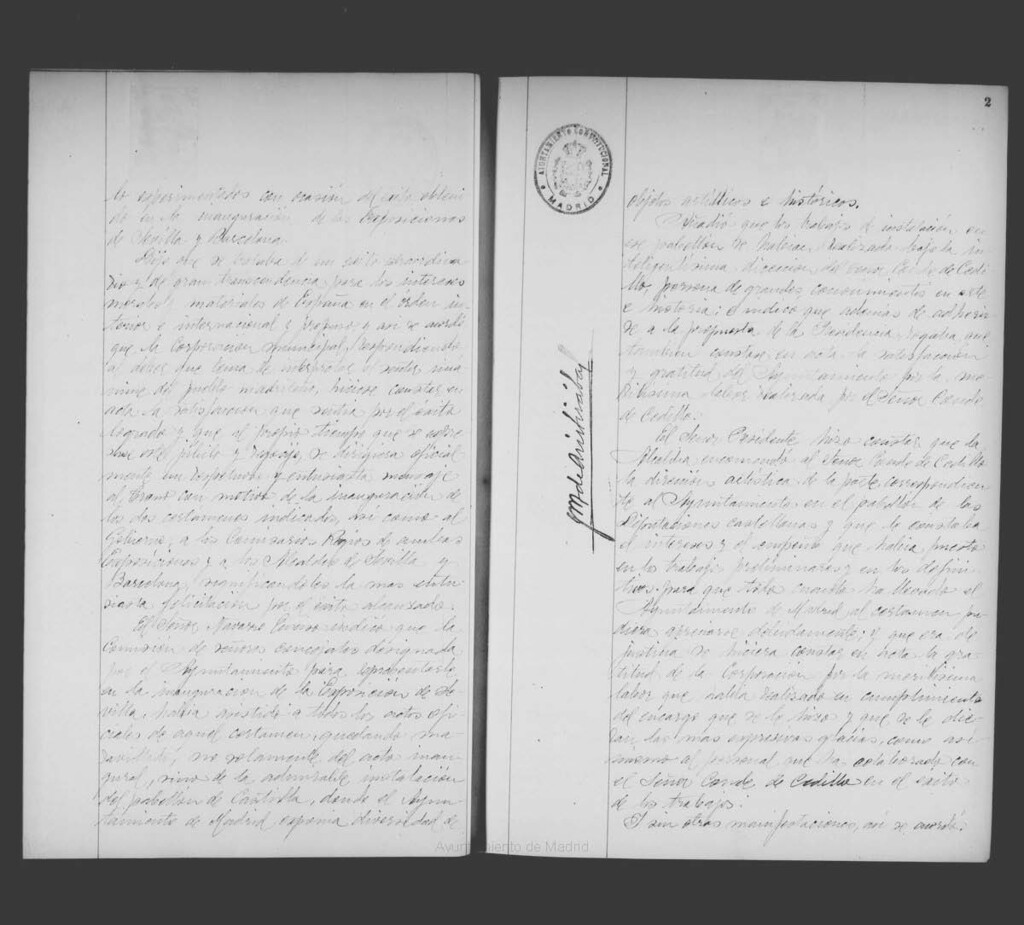 lo experimentados con ocasión del éxito obteni-
do en la inauguración de las Exposiciones
de Sevilla y Barcelona.
Dijo que se trataba de un éxito extraordina-
rio y de gran transcendencia para los intereses
morales y materiales de España en el orden in-
terior e internacional y propuso, y así se acordó
que la Corporación municipal, respondiendo
al deber que tenía de interpretar el sentir uná-
nime del pueblo madrileño, hiciese constar en
acta la satisfacción que sentía por el éxito
logrado y que al propio tiempo que se
júbilo y regocijo, se dirigiera oficial
mente un respetuoso y entusiasta mensaje
al Trono con motivo de la inauguración de
los dos certámenes indicados, así como al
Gobierno, a los Comisarios Regios de ambas
Exposiciones y a los Alcaldes de Sevilla y
Barcelona, la más entu-
siasta felicitación por el éxito alcanzado.
El Señor Navarro indicó que la
Comisión de señores concejales designada
por el Ayuntamiento para representarle
en la inauguración de la Exposición de Se-
villa, había asistido a todos los actos ofi-
ciales de aquel certamen, quedando ma-
ravillada, no solamente del acto inau-
gural, sino de la admirable instalación
del pabellón de Castilla, donde el Ayun-
tamiento de Madrid exponía diversidad de
2
AYUNTAMIENTO CONSTITUCIONAL
MADRID
objetos artísticos e históricos.
Añadió que los trabajos de instalación en
ese pabellón se habían realizado bajo la in-
teligentísima dirección del Señor Conde de Cedi-
llo, persona de grandes conocimientos en arte
e historia; e indicó que además de adherir-
se a la propuesta de la Presidencia, rogaba que
también constase en acta la satisfacción
y gratitud del Ayuntamiento por la me-
ritísima labor realizada por el Señor Conde
de Cedillo.
El Señor Presidente hizo constar que la
Alcaldía encomendó al Señor Conde de Cedillo
la dirección artística de la parte correspondien-
te al Ayuntamiento en el pabellón de las
Diputaciones castellanas y que le constaba
el interés y el empeño que había puesto
en los trabajos preliminares y en los defini-
tivos para que todo cuanto ha llevado el
Ayuntamiento de Madrid al certamen pu-
diera apreciarse debidamente; y que era de
justicia se hiciera constar en acta la gra-
titud de la Corporación por la meritísima
labor que había realizado en cumplimiento
del encargo que se le hizo y que se le die-
ran las más expresivas gracias, como así-
mismo al personal que ha colaborado con
el Señor Conde de Cedillo en el éxito
de los trabajos.
Y sin otras manifestaciones, así se acordó.
Ayuntamiento de Madrid